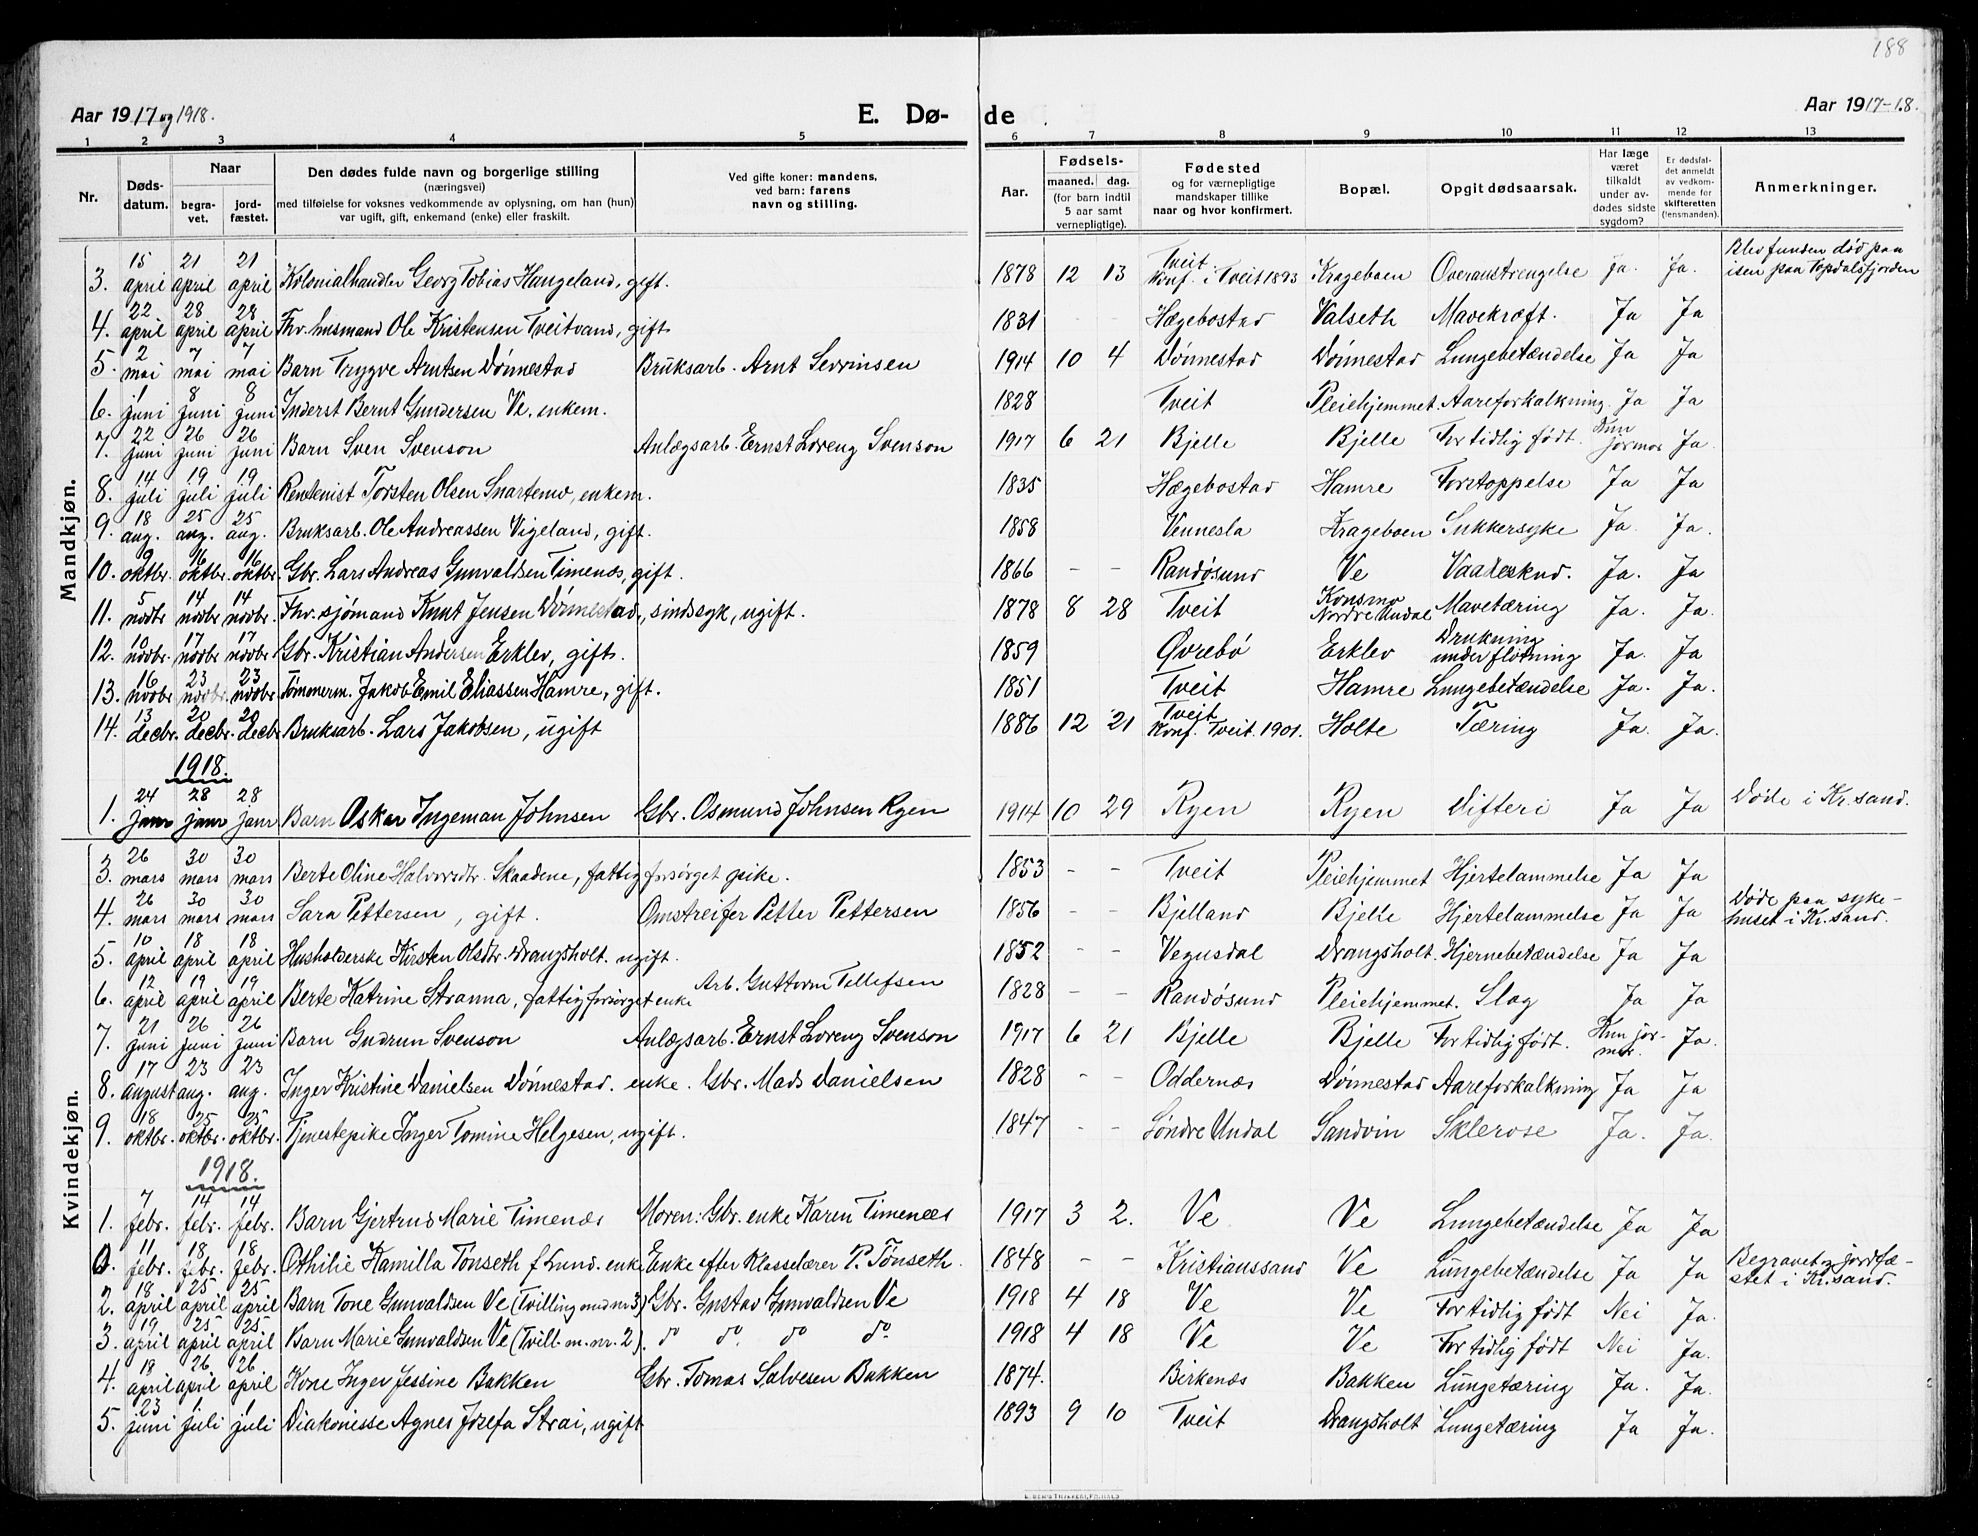 188
Aar 1917 og 1918. E. Døde Aar 1917-18.
1 2 3 4 5 6 7 8 9 10 11 12 13
Nr. Døds-datum. Naar begra-vet. jord-fæstet. Den dødes fulde navn og borgerlige stilling (næringsvei) med tilføielse for voksnes vedkommende av oplysning, om han (hun) var ugift, gift, enkemand (enke) eller fraskilt. Ved gifte koner: mandens, ved barn: farens navn og stilling. Aar. Fødsels- maaned. dag. (for barn indtil 5 aar samt vernepligtige). Fødested og for værnepligtige mandskaper tillike naar og hvor konfirmert. Bopæl. Opgit dødsaarsak. Har læge været tilkaldt under av-dødes sidste sygdom? Er dødsfal-det anmeldt av vedkom-mende for skifteretten (lensmanden). Anmerkninger.
Mandkjøn.
3. 15 april 21 april 21 april Kolonialhandler Georg Tobias Haugeland, gift. 1878 12 13 Tveit Konf. i Tveit 1893 Krageboen Overanstrengelse Ja. Ja. Blev funden død paa isen paa Topdalsfjorden
4. 22 april 28 april 28 april Fhv. husmand Ole Kristensen Tveitvand, gift 1831 Hægebostad Valseth Mavekræft. Ja Ja
5. 2 mai 7 mai 7 mai Barn Trygve Arntsen Dønnestad Bruksarb. Arnt Sevrinsen 1914 10 4 Dønnestad Dønnestad Lungebetændelse Ja Ja
6. 1 juni 8 juni 8 juni Inderst Bernt Gundersen Ve. enkem. 1828 Tveit Pleiehjemmet. Aareforkalkning. Ja Ja
7. 22 juni 26 juni 26 juni Barn Sven Svenson Anlægsarb. Ernst Loreng Svenson 1917 6 21 Bjelle Bjelle For tidlig født. Kun jormor Ja.
8. 14 juli 19 juli 19 juli Rentenist Torsten Olsen Snartemo, enkem. 1835 Hægebostad Hamre Forstoppelse Ja Ja
9. 18 aug. 25 aug. 25 aug. Bruksarb. Ole Andreassen Vigeland, gift. 1858 Vennesla Krageboen Sukkersyke Ja. Ja.
10. 9 oktbr. 16 oktbr. 16 oktbr. Gbr. Lars Andreas Gunvaldsen Timenæs, gift. 1866 - - Randøsund Ve Vaadeskud. Ja. Ja
11. 5 novbr 14 novbr. 14 novbr. Fhv. sjømand Knut Jensen Dønnestad, sindssyk, ugift. 1878 8 28 Tveit Konsmo Nordre Undal Mavetæring Ja. Ja.
12. 10 novbr. 17 novbr 17 novbr Gbr. Kristian Andersen Erklev, gift. 1859 Øvrebø Erklev Drukning under fløtning Ja. Ja
13. 16 novbr 23 novbr. 23 novbr Tømmerm. Jakob Emil Eliassen Hamre, gift. 1851 Tveit Hamre Lungebetændelse Ja. Ja.
14. 13 decbr. 20 decbr. 20 decbr Bruksarb. Lars Jakobsen, ugift 1886 12 21 Tveit Konf. Tveit 1901. Holte Tæring Ja. Ja.
1918.
1. 24 janr 28 janr 28 janr Barn Oskar Ingeman Johnsen Gbr. Osmund Johnsen Ryen 1914 10 29 Ryen Ryen Difteri Ja Ja Døde i Kr.sand.
Kvindekjøn.
3. 26 mars 30 mars 30 mars Berte Oline Halvorsdtr. Skaadene, fattigforsørget pike. 1853 - - Tveit Pleiehjemmet Hjertelammelse Ja Ja
4. 26 mars 30 mars 30 mars Sara Pettersen, gift. Omstreifer Petter Pettersen 1856 - - Bjelland Bjelle Hjertelammelse Ja Ja Døde paa syke-huset i Kr.sand.
5. 10 april 18 april 18 april Husholderske Kirsten Olsdtr. Drangsholt. ugift. 1852 - - Vegusdal Drangsholt. Hjernebetændelse Ja Ja
6. 12 april 19 april 19 april Berte Katrine Stranna, fattigforsørget enke Arb. Guttorm Tellefsen 1828 - - Randøsund Pleiehjemmet. Slag Ja Ja
7. 21 juni 26 juni 26 juni Barn Gudrun Svenson Anlægsarb. Ernst Loreng Svenson 1917 6 21 Bjelle Bjelle For tidlig født. Kun jor-mor. Ja.
8. 17 august 23 aug. 23 aug. Inger Kristine Danielsen Dønnestad. enke. Gbr. Mads Danielsen 1828 - - Oddernæs Dønnestad Aareforkalkning Ja Ja
9. 18 oktbr. 25 oktbr. 25 oktbr. Tjenestepike Inger Tomine Helgesen, ugift. 1847 - - Søndre Undal Sandvin Sklerose Ja. Ja.
1918.
1. 7 febr. 14 febr. 14 febr. Barn Gjertrud Marie Timenæs Moren: Gbr. enke Karen Timenæs 1917 3 2. Ve Ve Lungebetændelse Ja Ja
0. 11 febr. 18 febr. 18 febr. Othilie Kamilla Tønseth f. Lund. enke Enke efter Klasselærer P. Tønseth. 1848 - - Kristianssand Ve Lungebetændelse Ja Ja Begravet og jordfæ-stet i Kr.sand.
2. 18 april 25 april 25 april Barn Tone Gunvaldsen Ve (Tvilling med nr 3) Gbr. Gustav Gunvaldsen Ve 1918 4 18 Ve Ve For tidlig født Nei Ja.
3. 19 april 25 april 25 april Barn Marie Gunvaldsen Ve (Tvill. m. nr. 2). do do. do do. 1918 4 18 Ve Ve For tidlig født Nei Ja.
4. 18 april 26 april 26 april Kone Inger Jessine Bakken Gbr. Tomas Salvesen Bakken 1874. Birkenæs Bakken Lungetæring Ja. Ja.
5. 23 juni 1 juli 1 juli Diakonisse Agnes Josefa Strai, ugift 1893 9 10 Tveit Drangsholt Lungetæring Ja Ja.